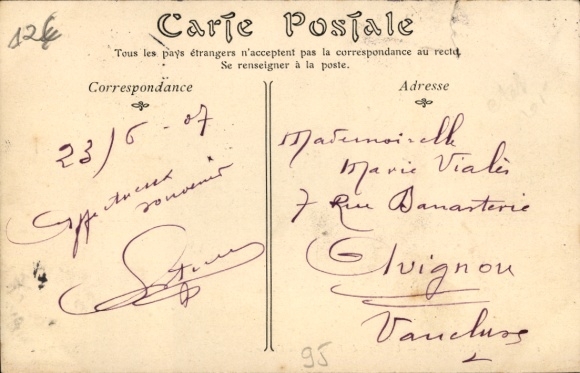 124
Carte Postale
Tous les pays étrangers n'acceptent pas la correspondance au recto.
Se renseigner à la poste.
Correspondance
Adresse
23/6-07
Affectueux
souvenir
Mademoiselle
Marie Vialès
7 Rue Banasterie
Avignon
Vaucluse
95